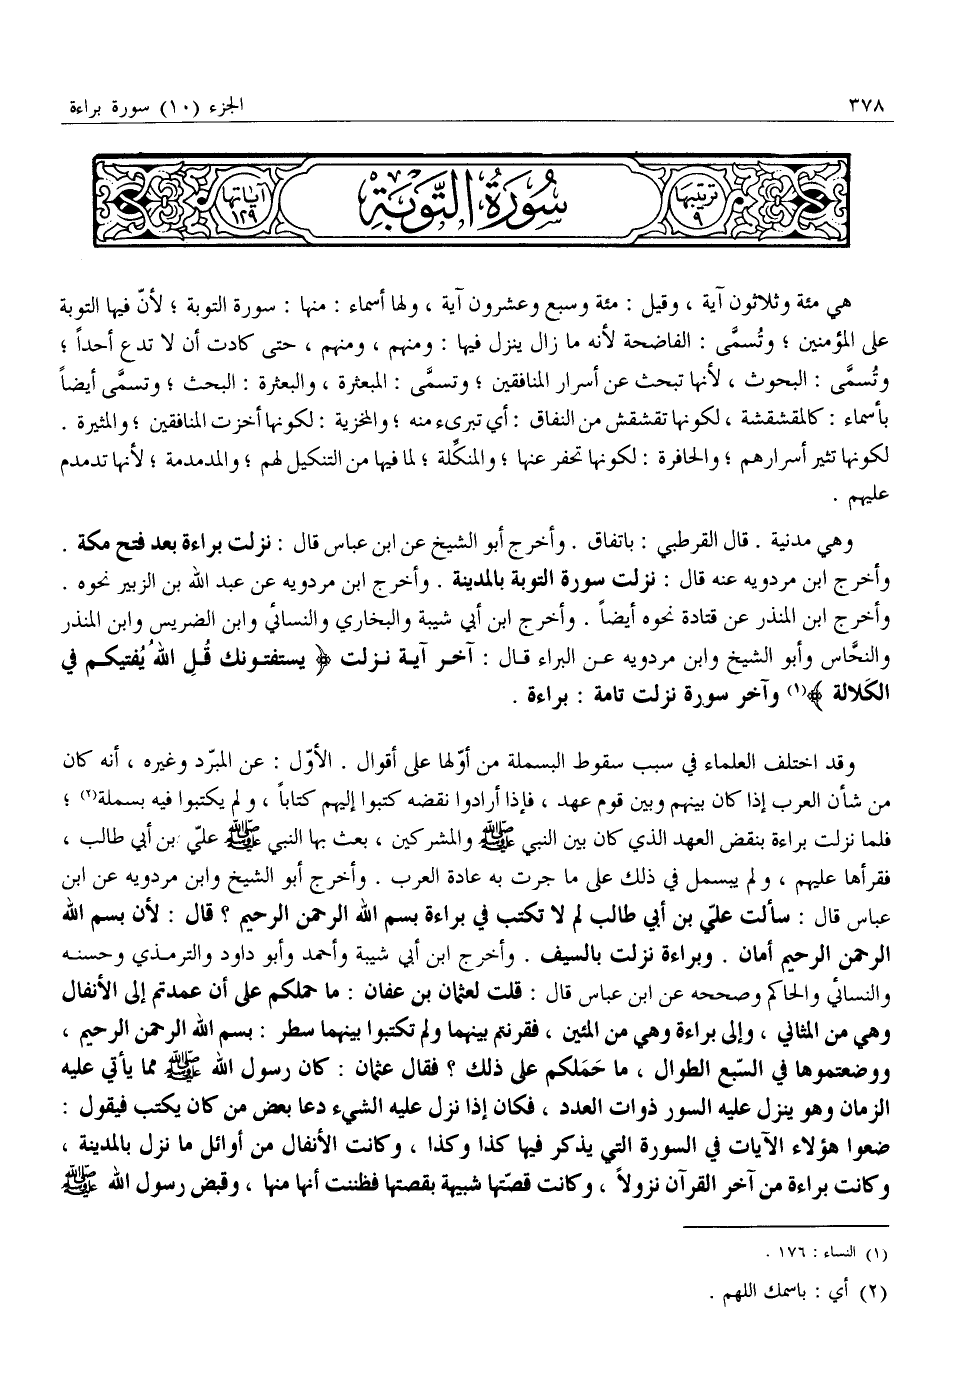 ٣٧٨
الجزء (١٠) سورة براءة
ترتيبها ٩
سُورَةُ التَّوبَةِ
آياتها ١٢٩
هي مئة وثلاثون آية ، وقيل : مئة وسبع وعشرون آية ، ولها أسماء : منها : سورة التوبة ؛ لأنّ فيها التوبة
على المؤمنين ؛ وتُسمَّى : الفاضحة لأنه ما زال ينزل فيها : ومنهم ، ومنهم ، حتى كادت أن لا تدع أحداً ؛
وتُسمَّى : البحوث ، لأنها تبحث عن أسرار المنافقين ؛ وتسمَّى : المبعثرة ، والبعثرة : البحث ؛ وتسمَّى أيضاً
بأسماء : كالمقشقشة ، لكونها تقشقش من النفاق : أي تبرىء منه ؛ والمخزية : لكونها أخزت المنافقين ؛ والمثيرة .
لكونها تثير أسرارهم ؛ والحافرة : لكونها تحفر عنها ؛ والمنكِّلة ؛ لما فيها من التنكيل لهم ؛ والمدمدمة ؛ لأنها تدمدم
عليهم .
وهي مدنية . قال القرطبي : باتفاق . وأخرج أبو الشيخ عن ابن عباس قال : نزلت براءة بعد فتح مكة .
وأخرج ابن مردويه عنه قال : نزلت سورة التوبة بالمدينة . وأخرج ابن مردويه عن عبد الله بن الزبير نحوه .
وأخرج ابن المنذر عن قتادة نحوه أيضاً . وأخرج ابن أبي شيبة والبخاري والنسائي وابن الضريس وابن المنذر
والنحَّاس وأبو الشيخ وابن مردويه عن البراء قال : آخر آية نزلت ﴿ يستفتونك قُلِ اللهُ يُفتيكم في
الكَلالة ﴾(١) وآخر سورة نزلت تامة : براءة .
وقد اختلف العلماء في سبب سقوط البسملة من أوّلها على أقوال . الأوّل : عن المبرّد وغيره ، أنه كان
من شأن العرب إذا كان بينهم وبين قوم عهد ، فإذا أرادوا نقضه كتبوا إليهم كتاباً ، و لم يكتبوا فيه بسملة(٢) ؛
فلما نزلت براءة بنقض العهد الذي كان بين النبي ﷺ والمشركين ، بعث بها النبي ﷺ عليّ بن أبي طالب ،
فقرأها عليهم ، و لم يبسمل في ذلك على ما جرت به عادة العرب . وأخرج أبو الشيخ وابن مردويه عن ابن
عباس قال : سألت عليّ بن أبي طالب لم لا تكتب في براءة بسم الله الرحمن الرحيم ؟ قال : لأن بسم الله
الرحمن الرحيم أمان . وبراءة نزلت بالسيف . وأخرج ابن أبي شيبة وأحمد وأبو داود والترمذي وحسنه
والنسائي والحاكم وصححه عن ابن عباس قال : قلت لعثمان بن عفان : ما حملكم على أن عمدتم إلى الأنفال
وهي من المثاني ، وإلى براءة وهي من المئين ، فقرنتم بينهما ولم تكتبوا بينهما سطر : بسم الله الرحمن الرحيم ،
ووضعتموها في السّبع الطوال ، ما حَمَلكم على ذلك ؟ فقال عثمان : كان رسول الله ﷺ مما يأتي عليه
الزمان وهو ينزل عليه السور ذوات العدد ، فكان إذا نزل عليه الشيء دعا بعض من كان يكتب فيقول :
ضعوا هؤلاء الآيات في السورة التي يذكر فيها كذا وكذا ، وكانت الأنفال من أوائل ما نزل بالمدينة ،
وكانت براءة من آخر القرآن نزولاً ، وكانت قصّتها شبيهة بقصتها فظننت أنها منها ، وقبض رسول الله ﷺ
(١) النساء : ١٧٦ .
(٢) أي : باسمك اللهم .